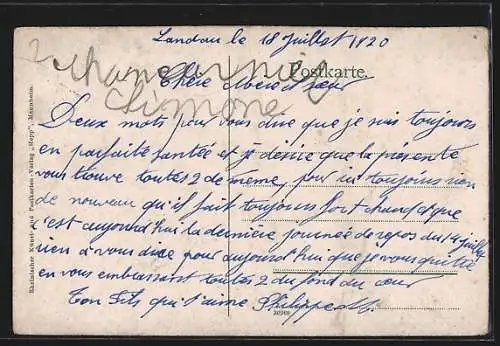 Landau le 18 Juillet 1920
Postkarte.
Chère mère et sœur
Simone
Deux mots pour vous dire que je suis toujours
en parfaite santée et je désire que la présente
vous trouve toutes 2 de même, pour moi toujours rien
de nouveau qu'il fait toujours fort chaud et que
c'est aujourd'hui la dernière journée de repos du 14 juillet
rien à vous dire pour aujourd'hui que je vous quitte
en vous embrassant toutes 2 du fond du cœur
Ton fils qui t'aime Philippe
Rheinischer Kunst- und Postkarten-Verlag „Hepp", Mannheim.